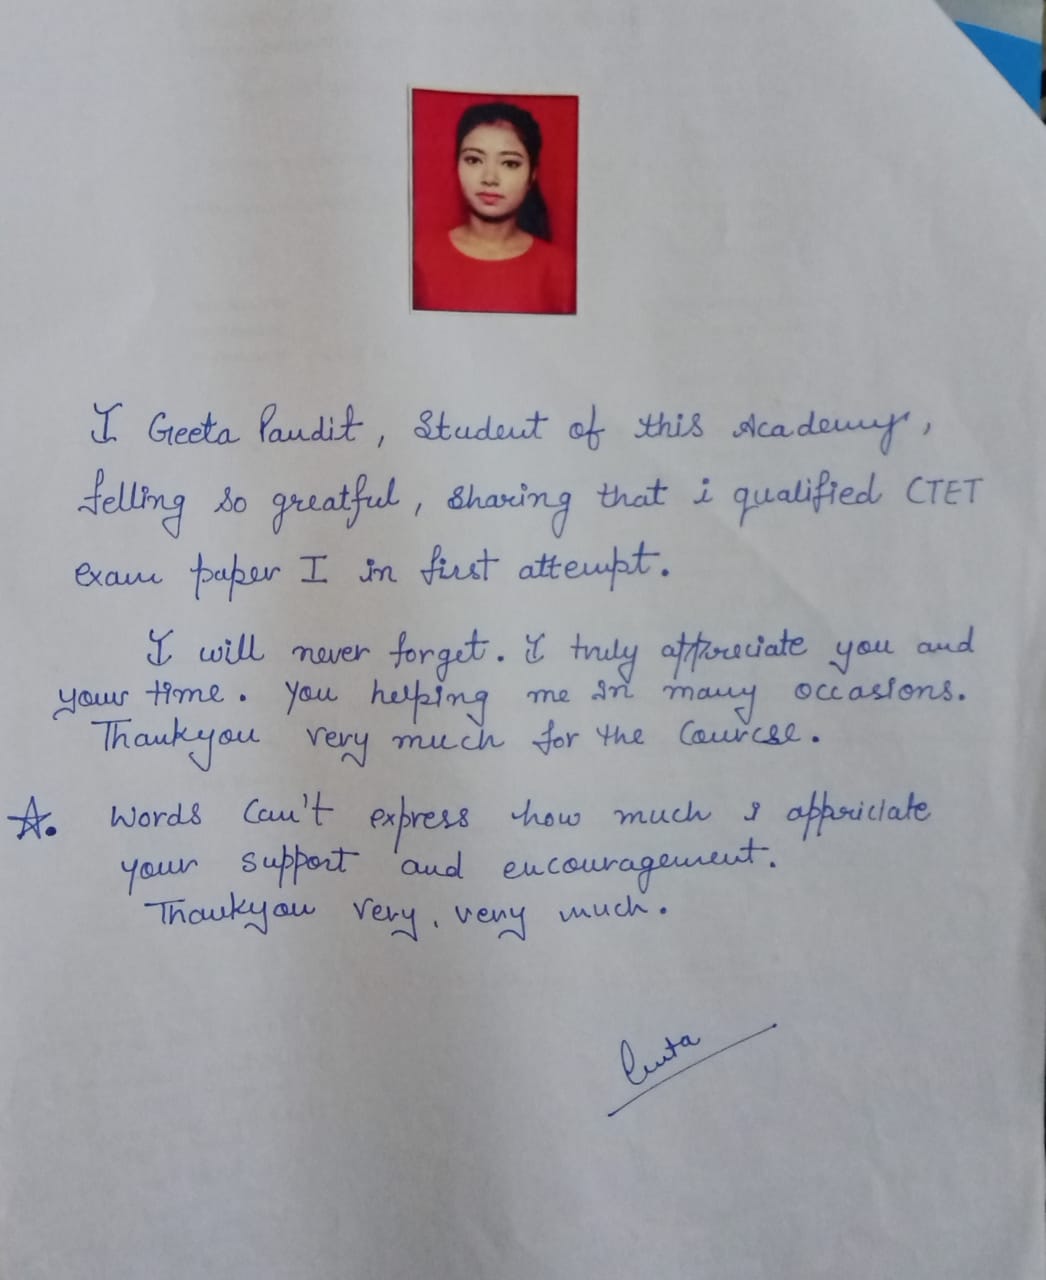 I Geeta Pandit, Student of this Academy,
felling so greatful, sharing that i qualified CTET
exam paper I in first attempt.
I will never forget. I truly appreciate you and
your time. You helping me in many occasions.
Thankyou very much for the Cource.
☆. Words Can't express how much I appriciate
your support and encouragement.
Thankyou very, very much.
Geeta